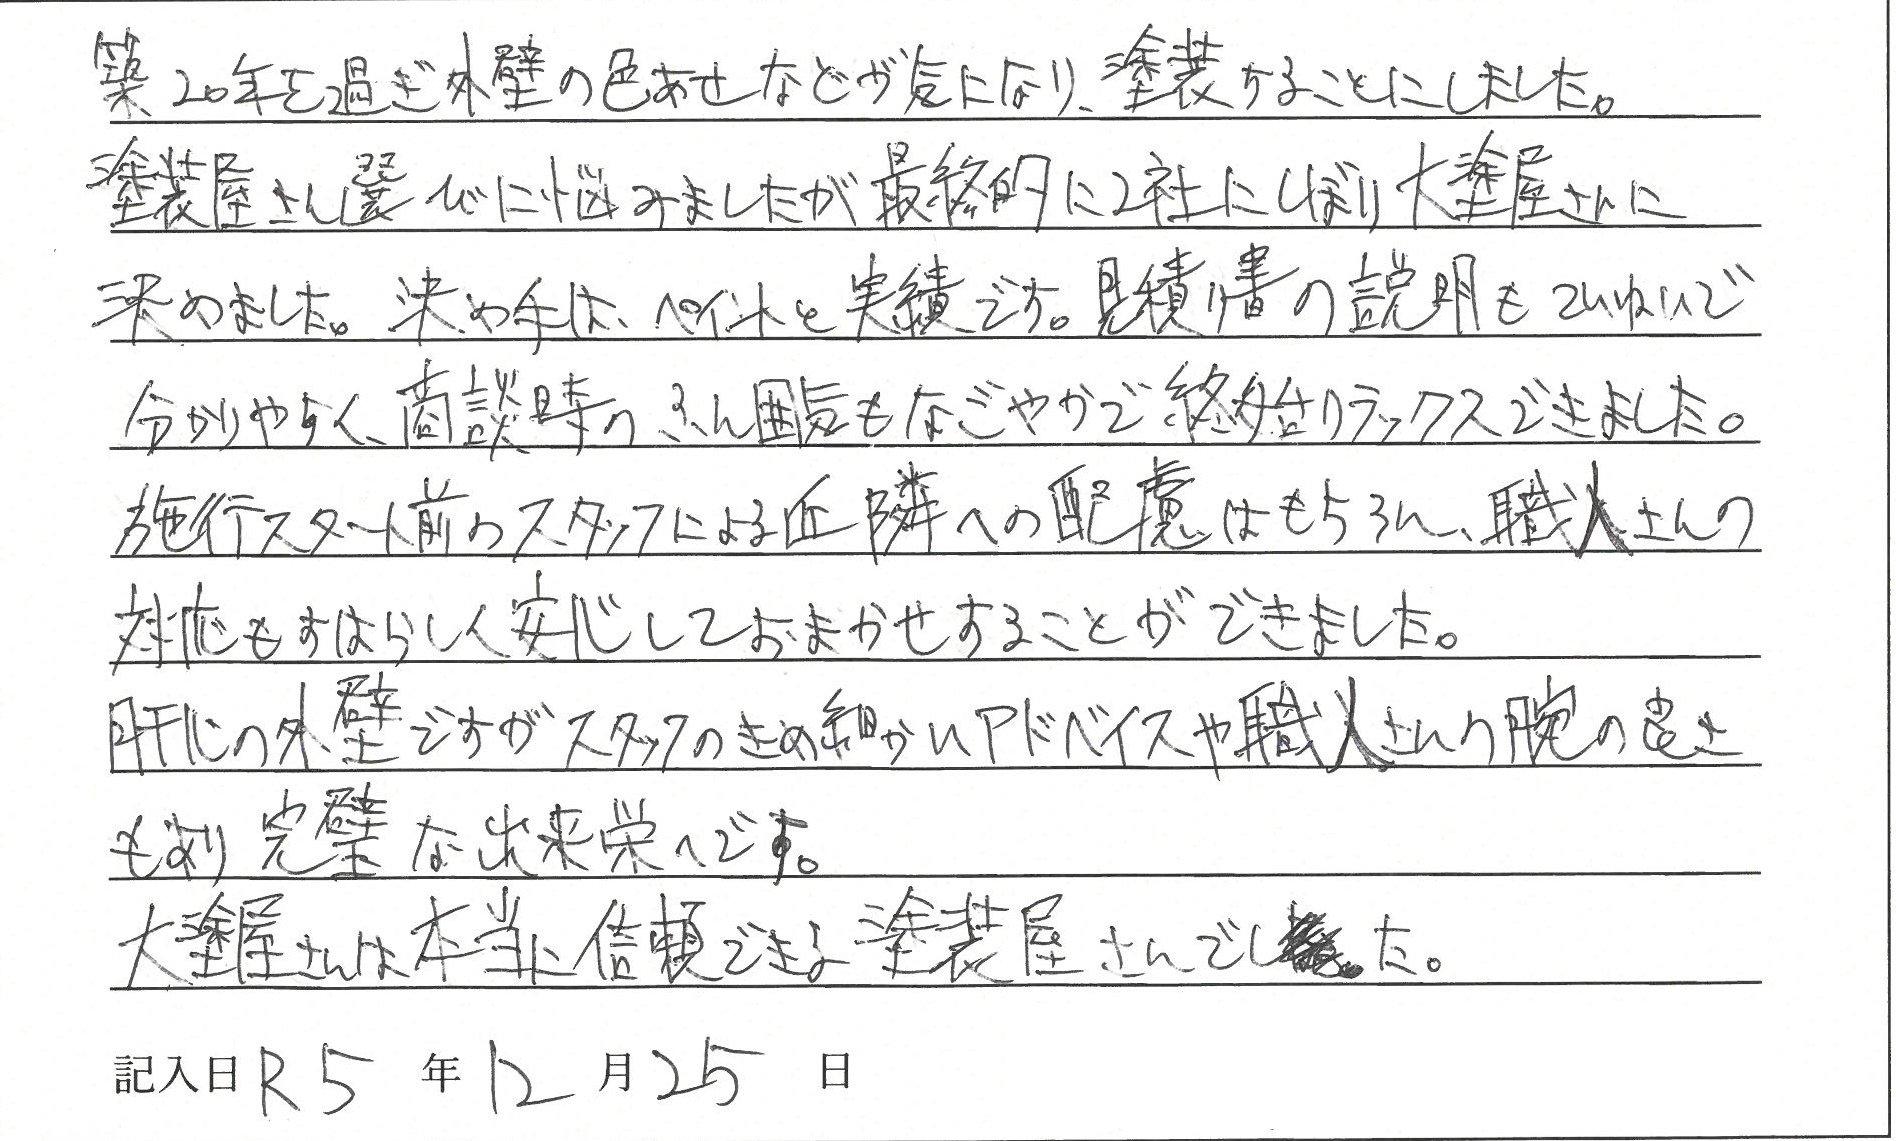 築20年を過ぎ外壁の色あせなどが気になり、塗装することにしました。
塗装屋さん選びに悩みましたが最終的に2社にしぼり大塗屋さんに
決めました。決め手は、ペイントと実績です。見積り書の説明もていねいで
分かりやすく、商談時のふん囲気もなごやかで終始リラックスできました。
施行スタート前のスタッフによる近隣への配慮はもちろん、職人さんの
対応もすばらしく安心しておまかせすることができました。
肝心の外壁ですがスタッフのきめ細かいアドベイスや職人さんの腕の良さ
もあり完壁な出来栄へです。
大塗屋さんは本当に信頼できる塗装屋さんでした。
記入日 R5 年 12 月 25 日